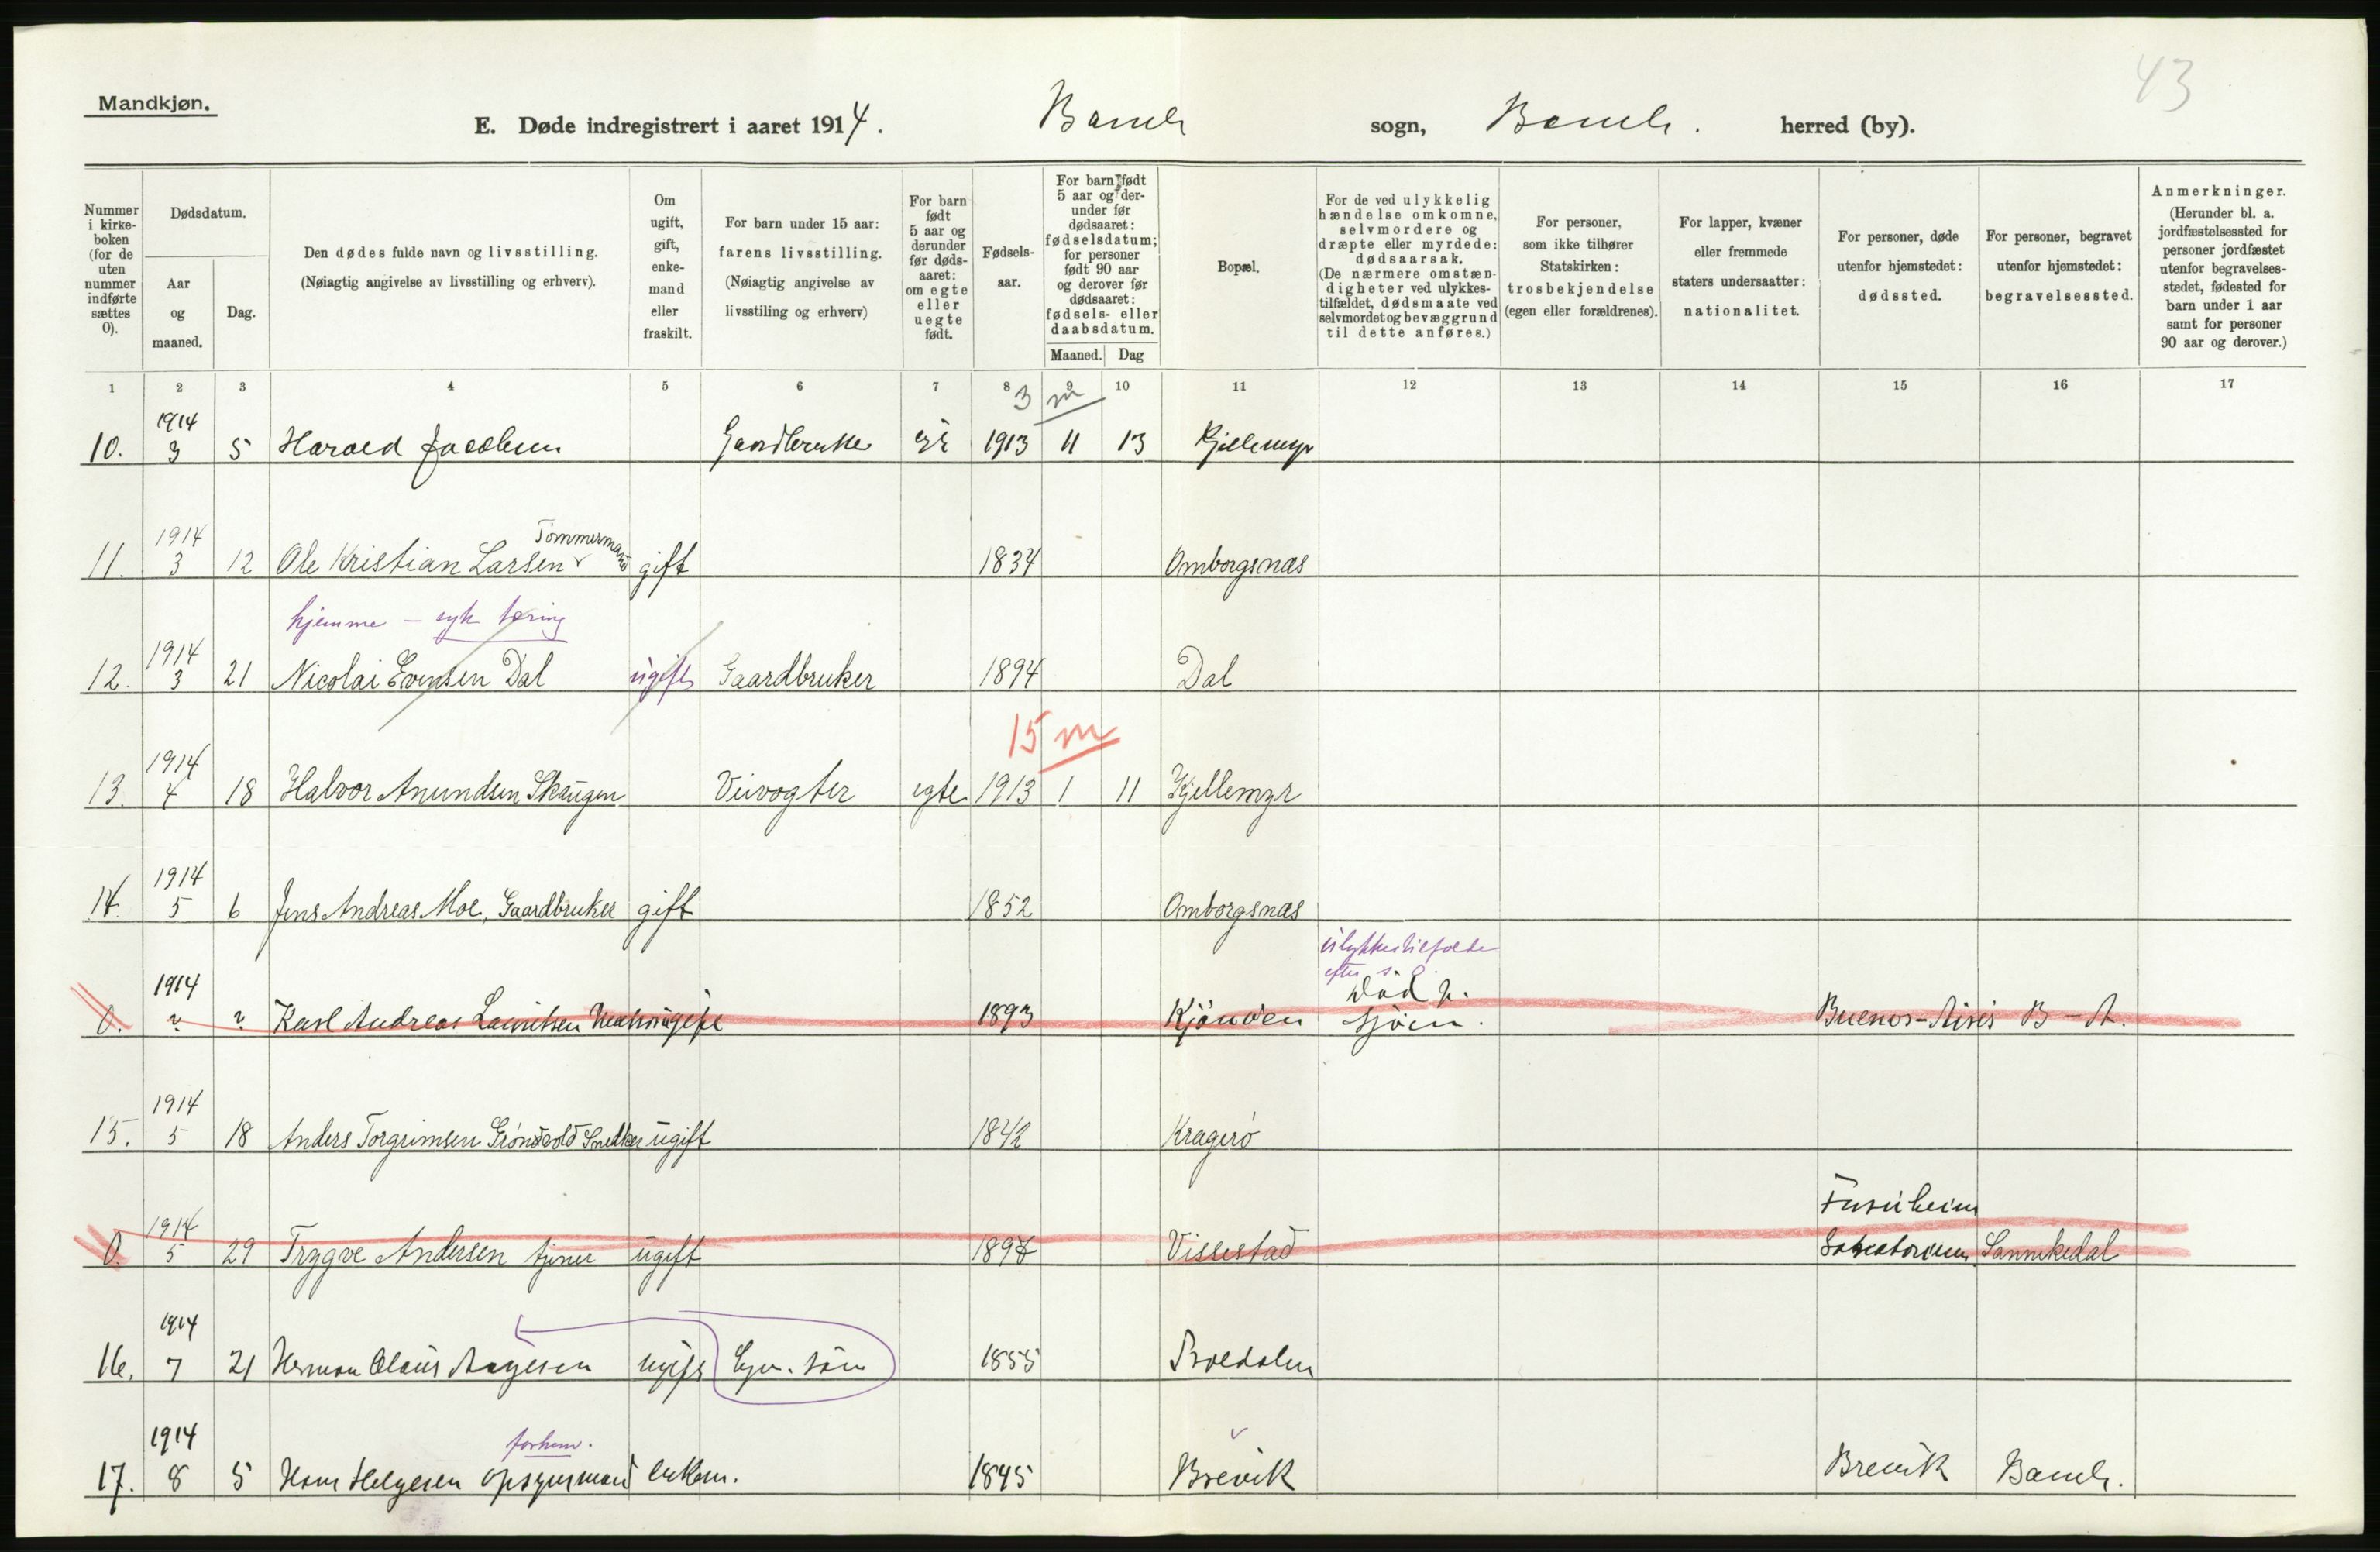 43
Mandkjøn.
E. Døde indregistrert i aaret 1914. Bamle sogn, Bamle. herred (by).
Nummer i kirkeboken (for de uten nummer indførte sættes 0).
Dødsdatum.
Aar og maaned.
Dag.
Den dødes fulde navn og livsstilling.
(Nøiagtig angivelse av livsstilling og erhverv).
Om ugift, gift, enkemand eller fraskilt.
For barn under 15 aar: farens livsstilling.
(Nøiagtig angivelse av livsstiling og erhverv)
For barn født 5 aar og derunder før dødsaaret: om egte eller uegte født.
Fødselsaar.
For barn født 5 aar og derunder før dødsaaret: fødselsdatum; for personer født 90 aar og derover før dødsaaret: fødsels- eller daabsdatum.
Maaned. Dag
Bopæl.
For de ved ulykkelig hændelse omkomne, selvmordere og dræpte eller myrdede: dødsaarsak.
(De nærmere omstændigheter ved ulykkestilfældet, dødsmaate ved selvmordet og bevæggrund til dette anføres.)
For personer, som ikke tilhører Statskirken: trosbekjendelse (egen eller forældrenes).
For lapper, kvæner eller fremmede staters undersaatter: nationalitet.
For personer, døde utenfor hjemstedet: dødssted.
For personer, begravet utenfor hjemstedet: begravelsessted.
Anmerkninger.
(Herunder bl. a. jordfæstelsessted for personer jordfæstet utenfor begravelsesstedet, fødested for barn under 1 aar samt for personer 90 aar og derover.)
1 2 3 4 5 6 7 8 9 10 11 12 13 14 15 16 17
3 m
1914
10. 3 5 Harald Jacobsen Gaardbruker 1913 11 13 Kjellemyr
1914 Tømmermand
11. 3 12 Ole Kristian Larsen gift 1834 Omborgsnæs
hjemme – syk tæring
1914
12. 3 21 Nicolai Evensen Dal ugift Gaardbruker 1894 Dal
15 m
1914
13. 4 18 Halvor Anundsen Skaugen Veivogter egte 1913 1 11 Kjellemyr
1914
14. 5 6 Jens Andreas Moe, Gaardbruker gift 1852 Omborgsnæs
ulykkestilfælde
efter
1914 Død p.
0. ? ? Karl Andreas Lauritsen ugift 1893 sjøen. Buenos-Aires B-A.
1914
15. 5 18 Anders Torgrimsen Grønsvold Snedker ugift 1842 Kragerø
1914 Furuheim
0. 5 29 Trygve Andersen tjener ugift 1897 Vissestad Sanatorium Sannikedal
1914
16. 7 21 Herman Olaus Aagesen ugift 1855
1914 forhenv.
17. 8 5 Hans Helgesen opsynsmand enkem. 1845 Brevik Brevik Bamle.